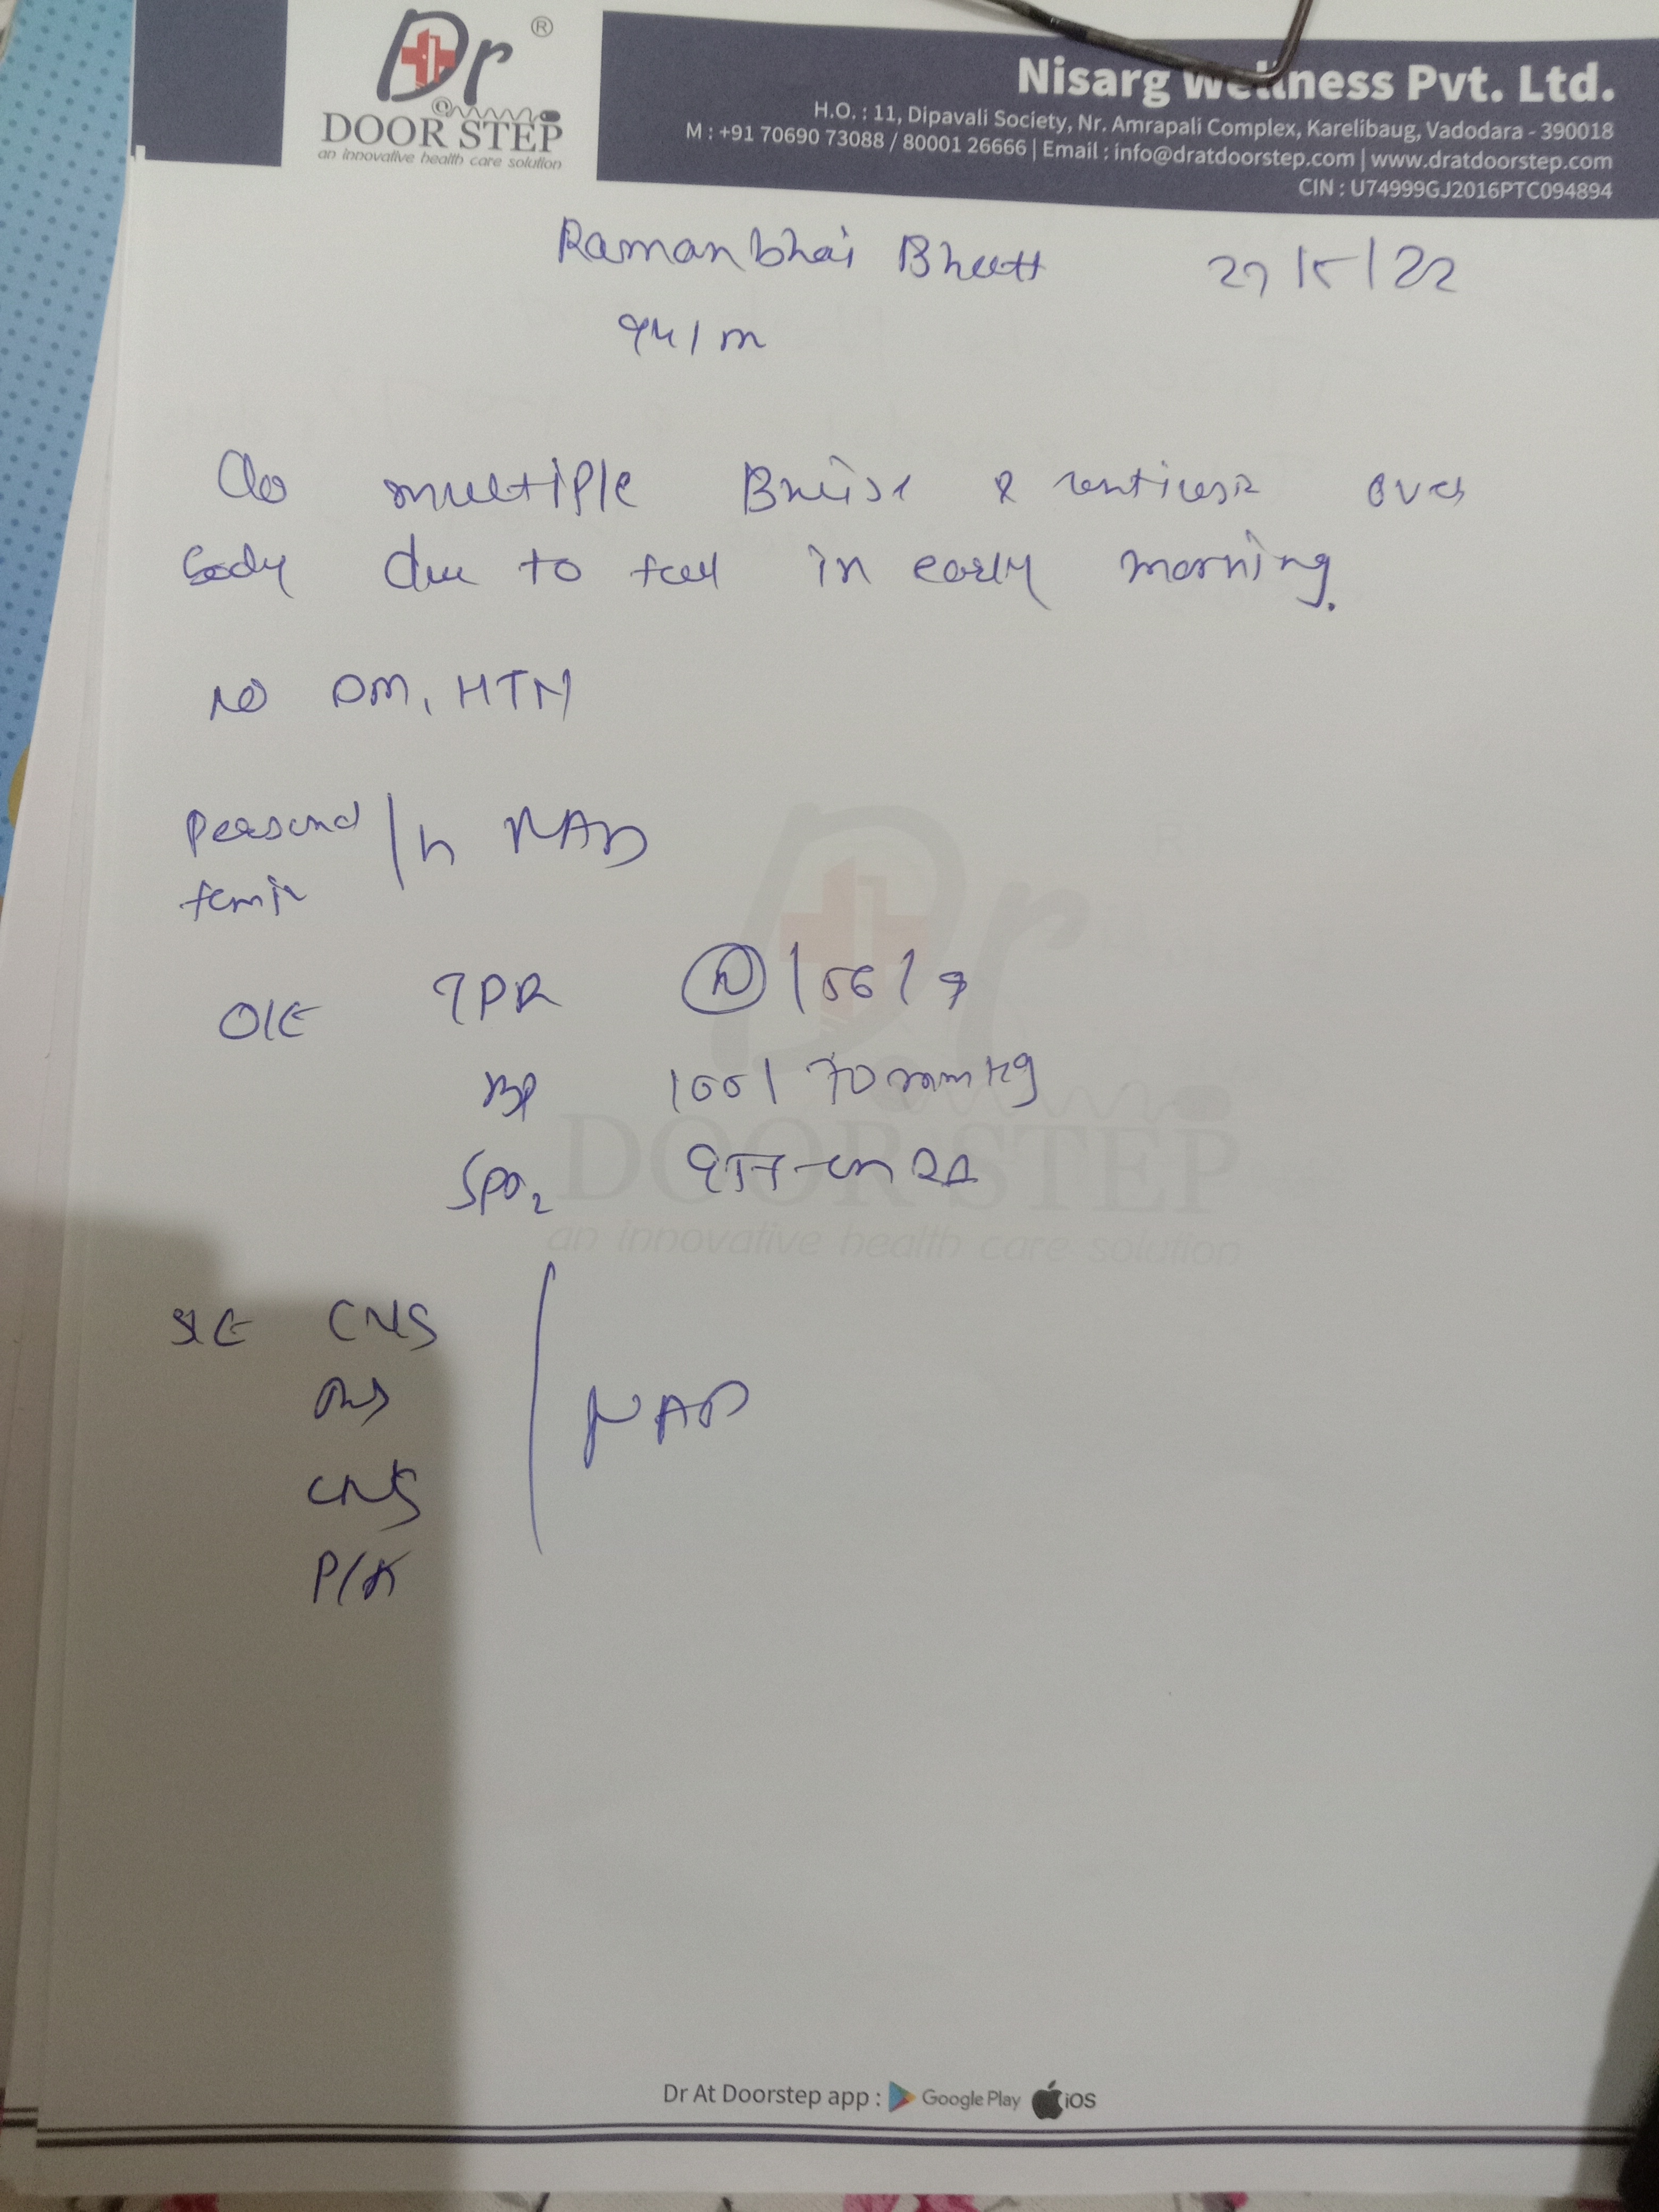 Dr ®
@
DOOR STEP
an innovative health care solution
Nisarg Wellness Pvt. Ltd.
H.O. : 11, Dipavali Society, Nr. Amrapali Complex, Karelibaug, Vadodara - 390018
M : +91 70690 73088 / 80001 26666 | Email : info@dratdoorstep.com | www.dratdoorstep.com
CIN : U74999GJ2016PTC094894
Ramanbhai Bhatt 27/5/22
94/m
C/o multiple Bruise & over
body due to fall in early morning.
NO DM, HTN
Personal /h NAD
O/E TPR (N) / 56 /
BP 100/70 mmHg
SPO2 on RA
S/E CNS
RS NAD
CNS
P/A
DOOR STEP
an innovative health care solution
Dr At Doorstep app : Google Play iOS